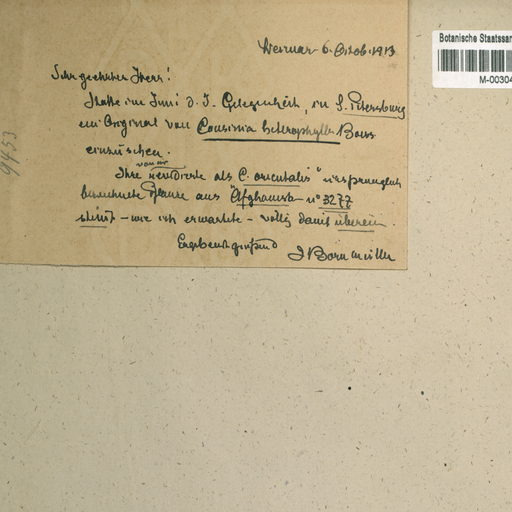 Weimar 6. Octob. 1913
Sehr geehrter Herr!
Hatte im Juni d. J. Gelegenheit, in S. Petersburg
ein Original von Cousinia heterophylla Boiss
einzusehen.
von mir
Ihre als C. orientalis" ursprünglich
bezeichnete Pflanze aus "Afghanistan no 3277
stimt - wie ich erwartete - völlig damit überein.
Ergebenst grüßend
J Bornmüller
9453
Botanische Staatssam
M-00304